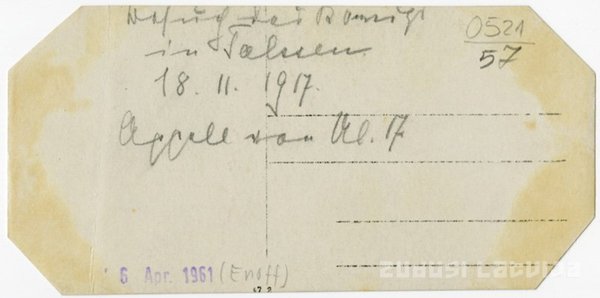 Besuch des Königs
in Talssen
18. 11. 1917.
Appell von Ul. 17
0521
57
6 Apr. 1961 (Enoff)
ZUDUSĪ LATVIJA